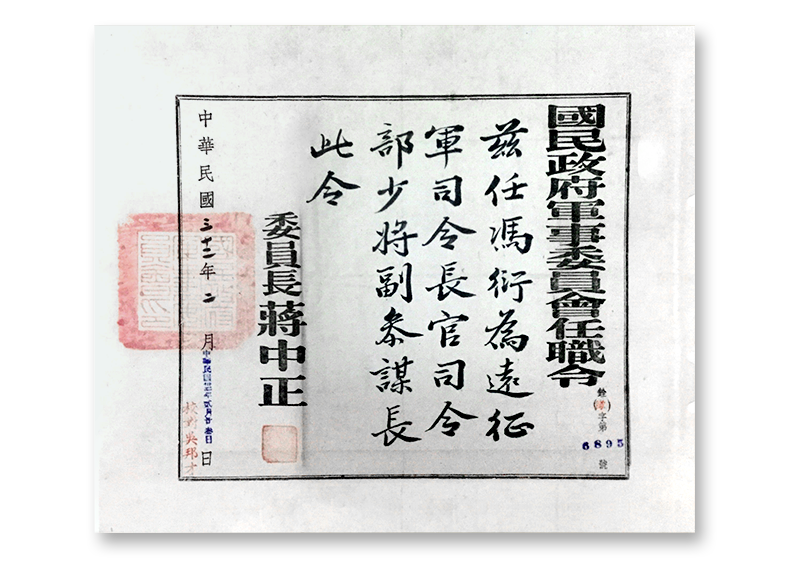 國民政府軍事委員會任職令
字第6895號
茲任馮衍為遠征
軍司令長官司令
部少將副參謀長
此令
委員長蔣中正
中華民國三十二年二月 日
校對吳邦才